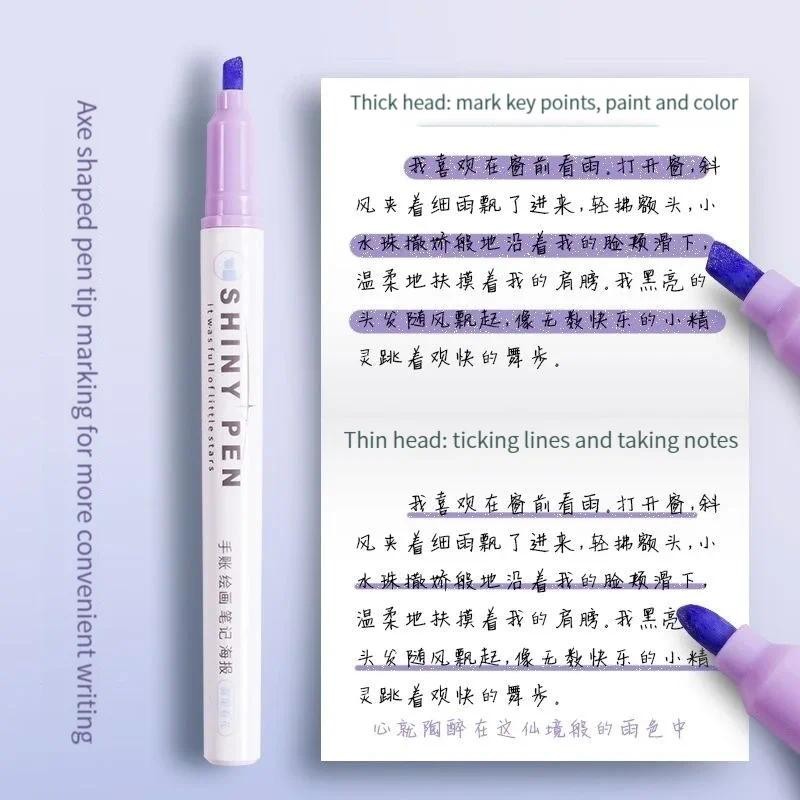 Axe shaped pen tip marking for more convenient writing
SHINY PEN
it was full of little stars
手账 绘画 笔记 海报
Thick head: mark key points, paint and color
我喜欢在窗前看雨。打开窗,斜
风夹着细雨飘了进来,轻拂额头,小
水珠撒娇般地沿着我的脸颊滑下,
温柔地扶摸着我的肩膀。我黑亮的
头发随风飘起,像无数快乐的小精
灵跳着欢快的舞步。
Thin head: ticking lines and taking notes
我喜欢在窗前看雨。打开窗,斜
风夹着细雨飘了进来,轻拂额头,小
水珠撒娇般地沿着我的脸颊滑下,
温柔地扶摸着我的肩膀。我黑亮
头发随风飘起,像无数快乐的小精
灵跳着欢快的舞步。
心就陶醉在这仙境般的雨色中